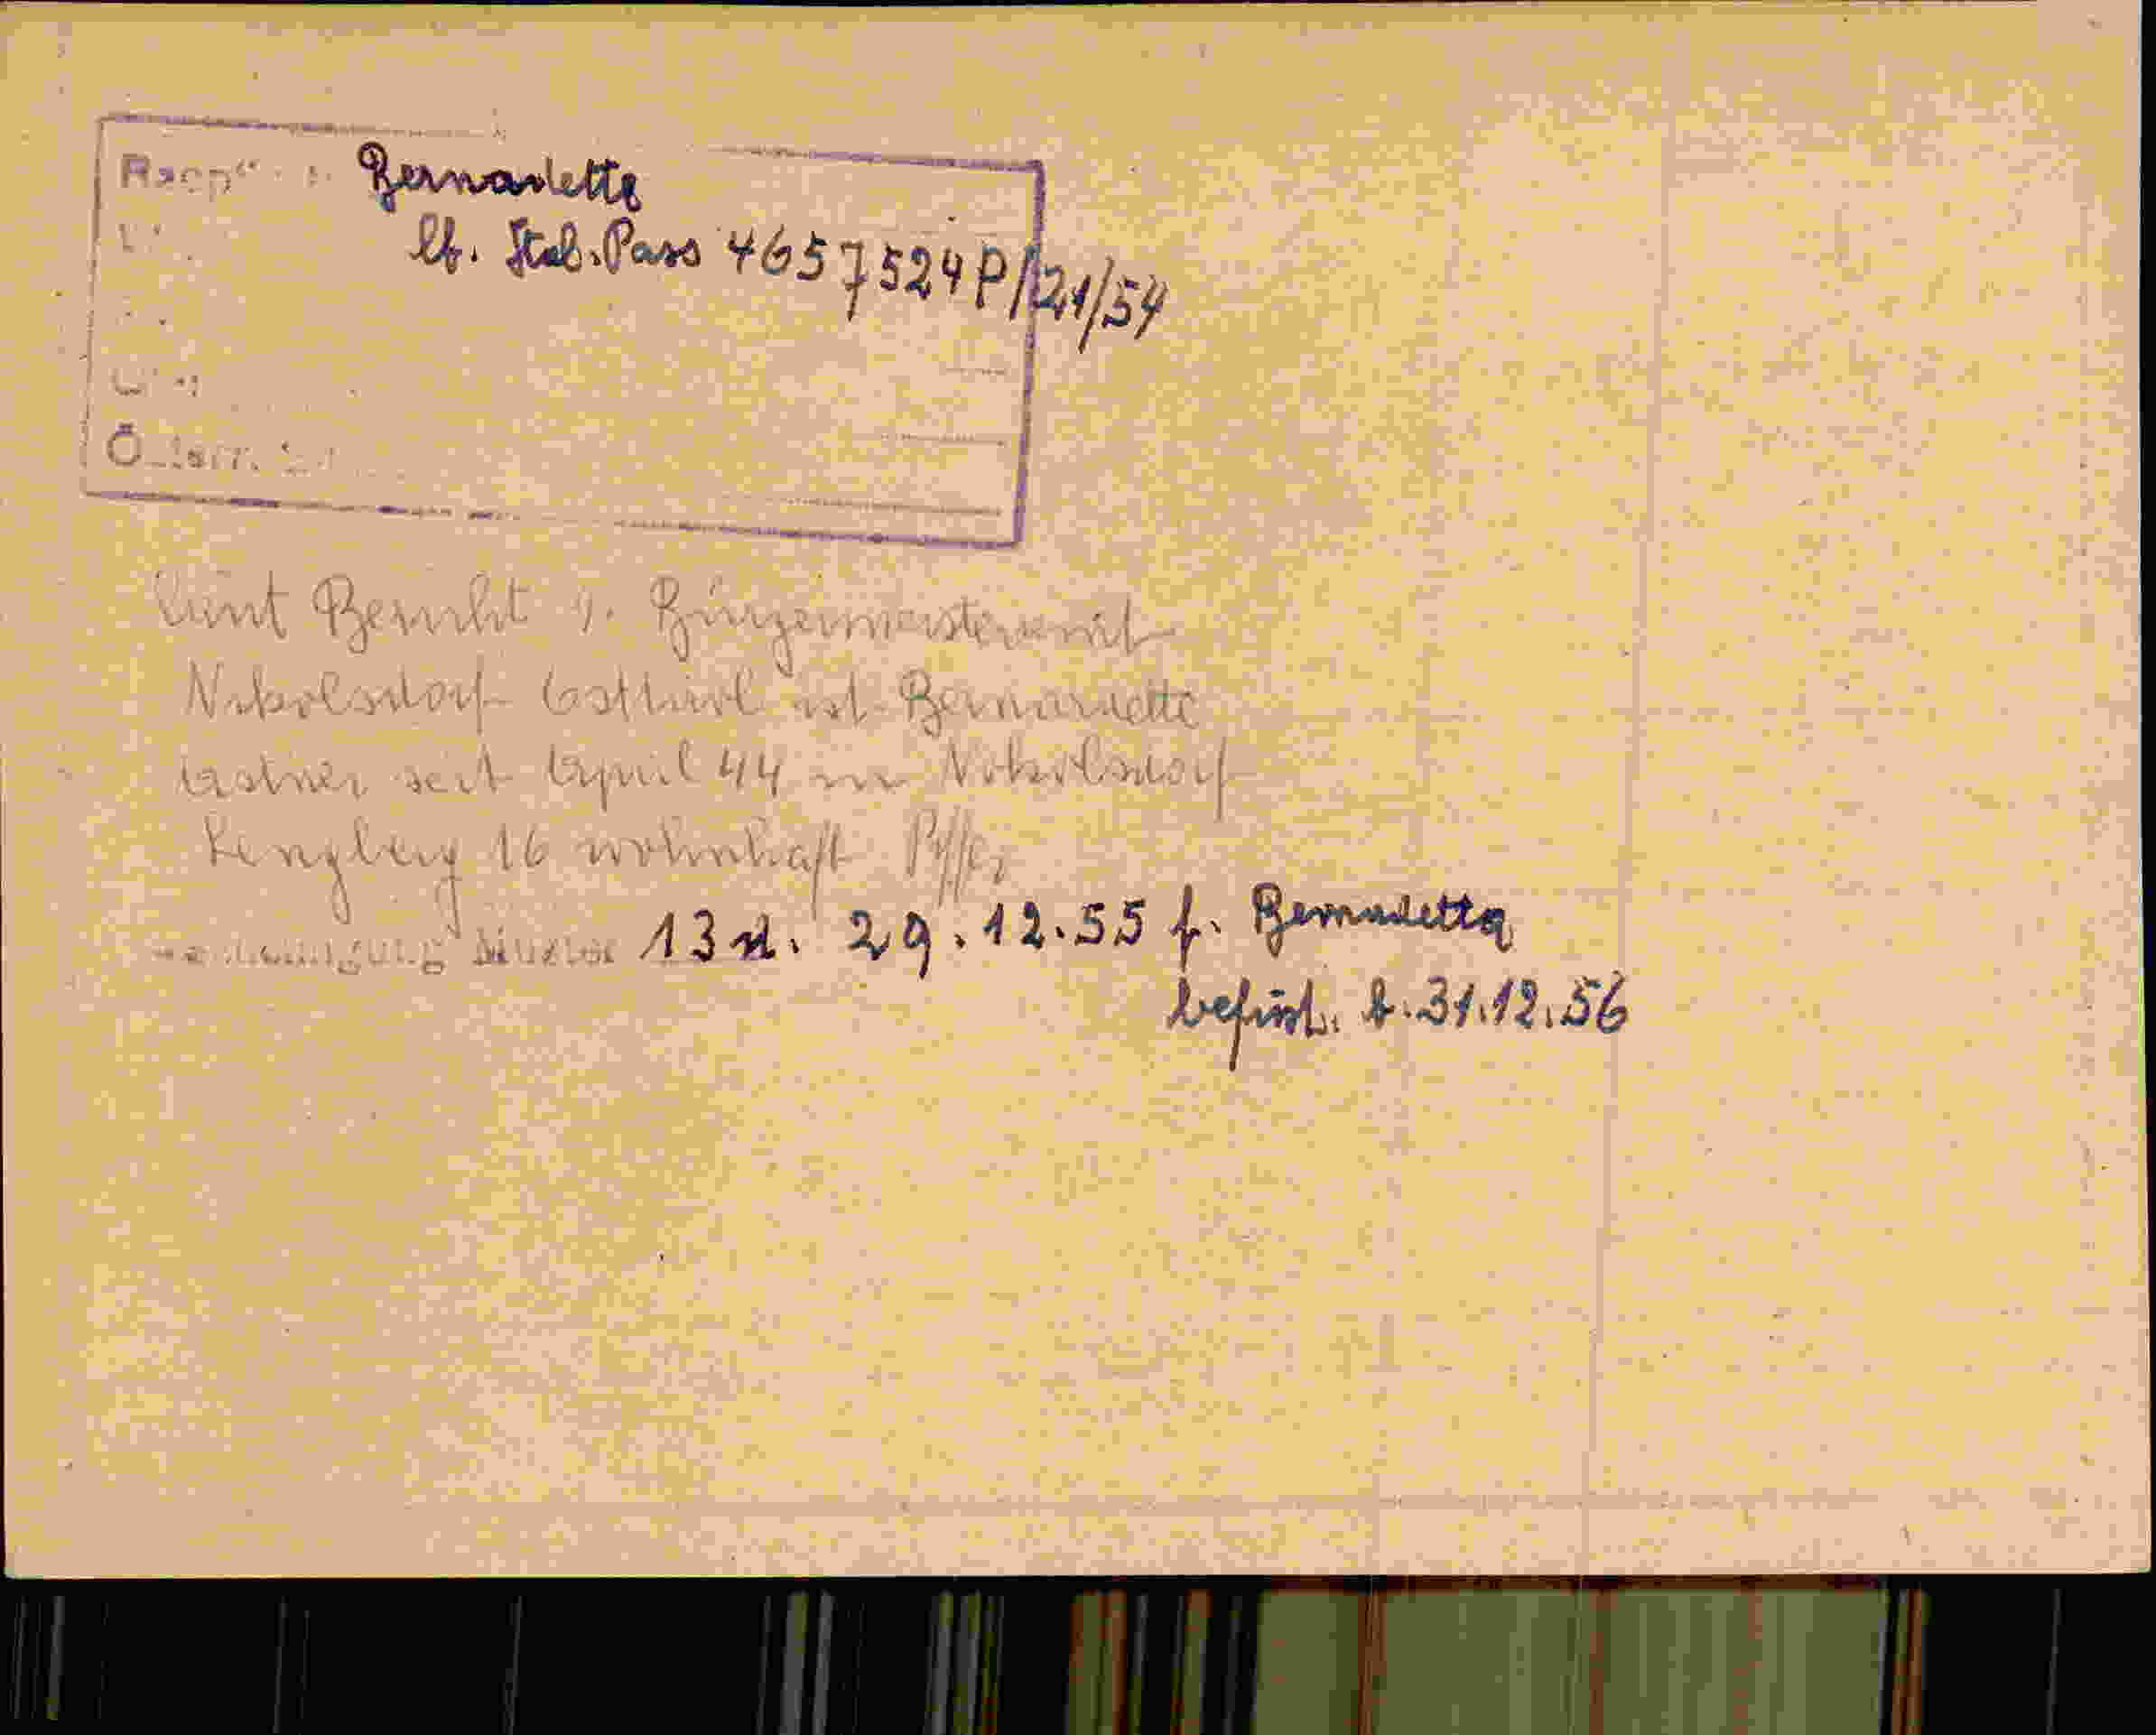 Bernadetta
lt. Ital. Pass 4657524P/121/54
Laut Bericht d. Bürgermeisteramt
Nikolsdorf Osttirol ist Bernardette
seit April 44 in Nikolsdorf
Lengberg 16 wohnhaft
13 n. 29.12.55 f. Bernadetta
befrist. b. 31.12.56